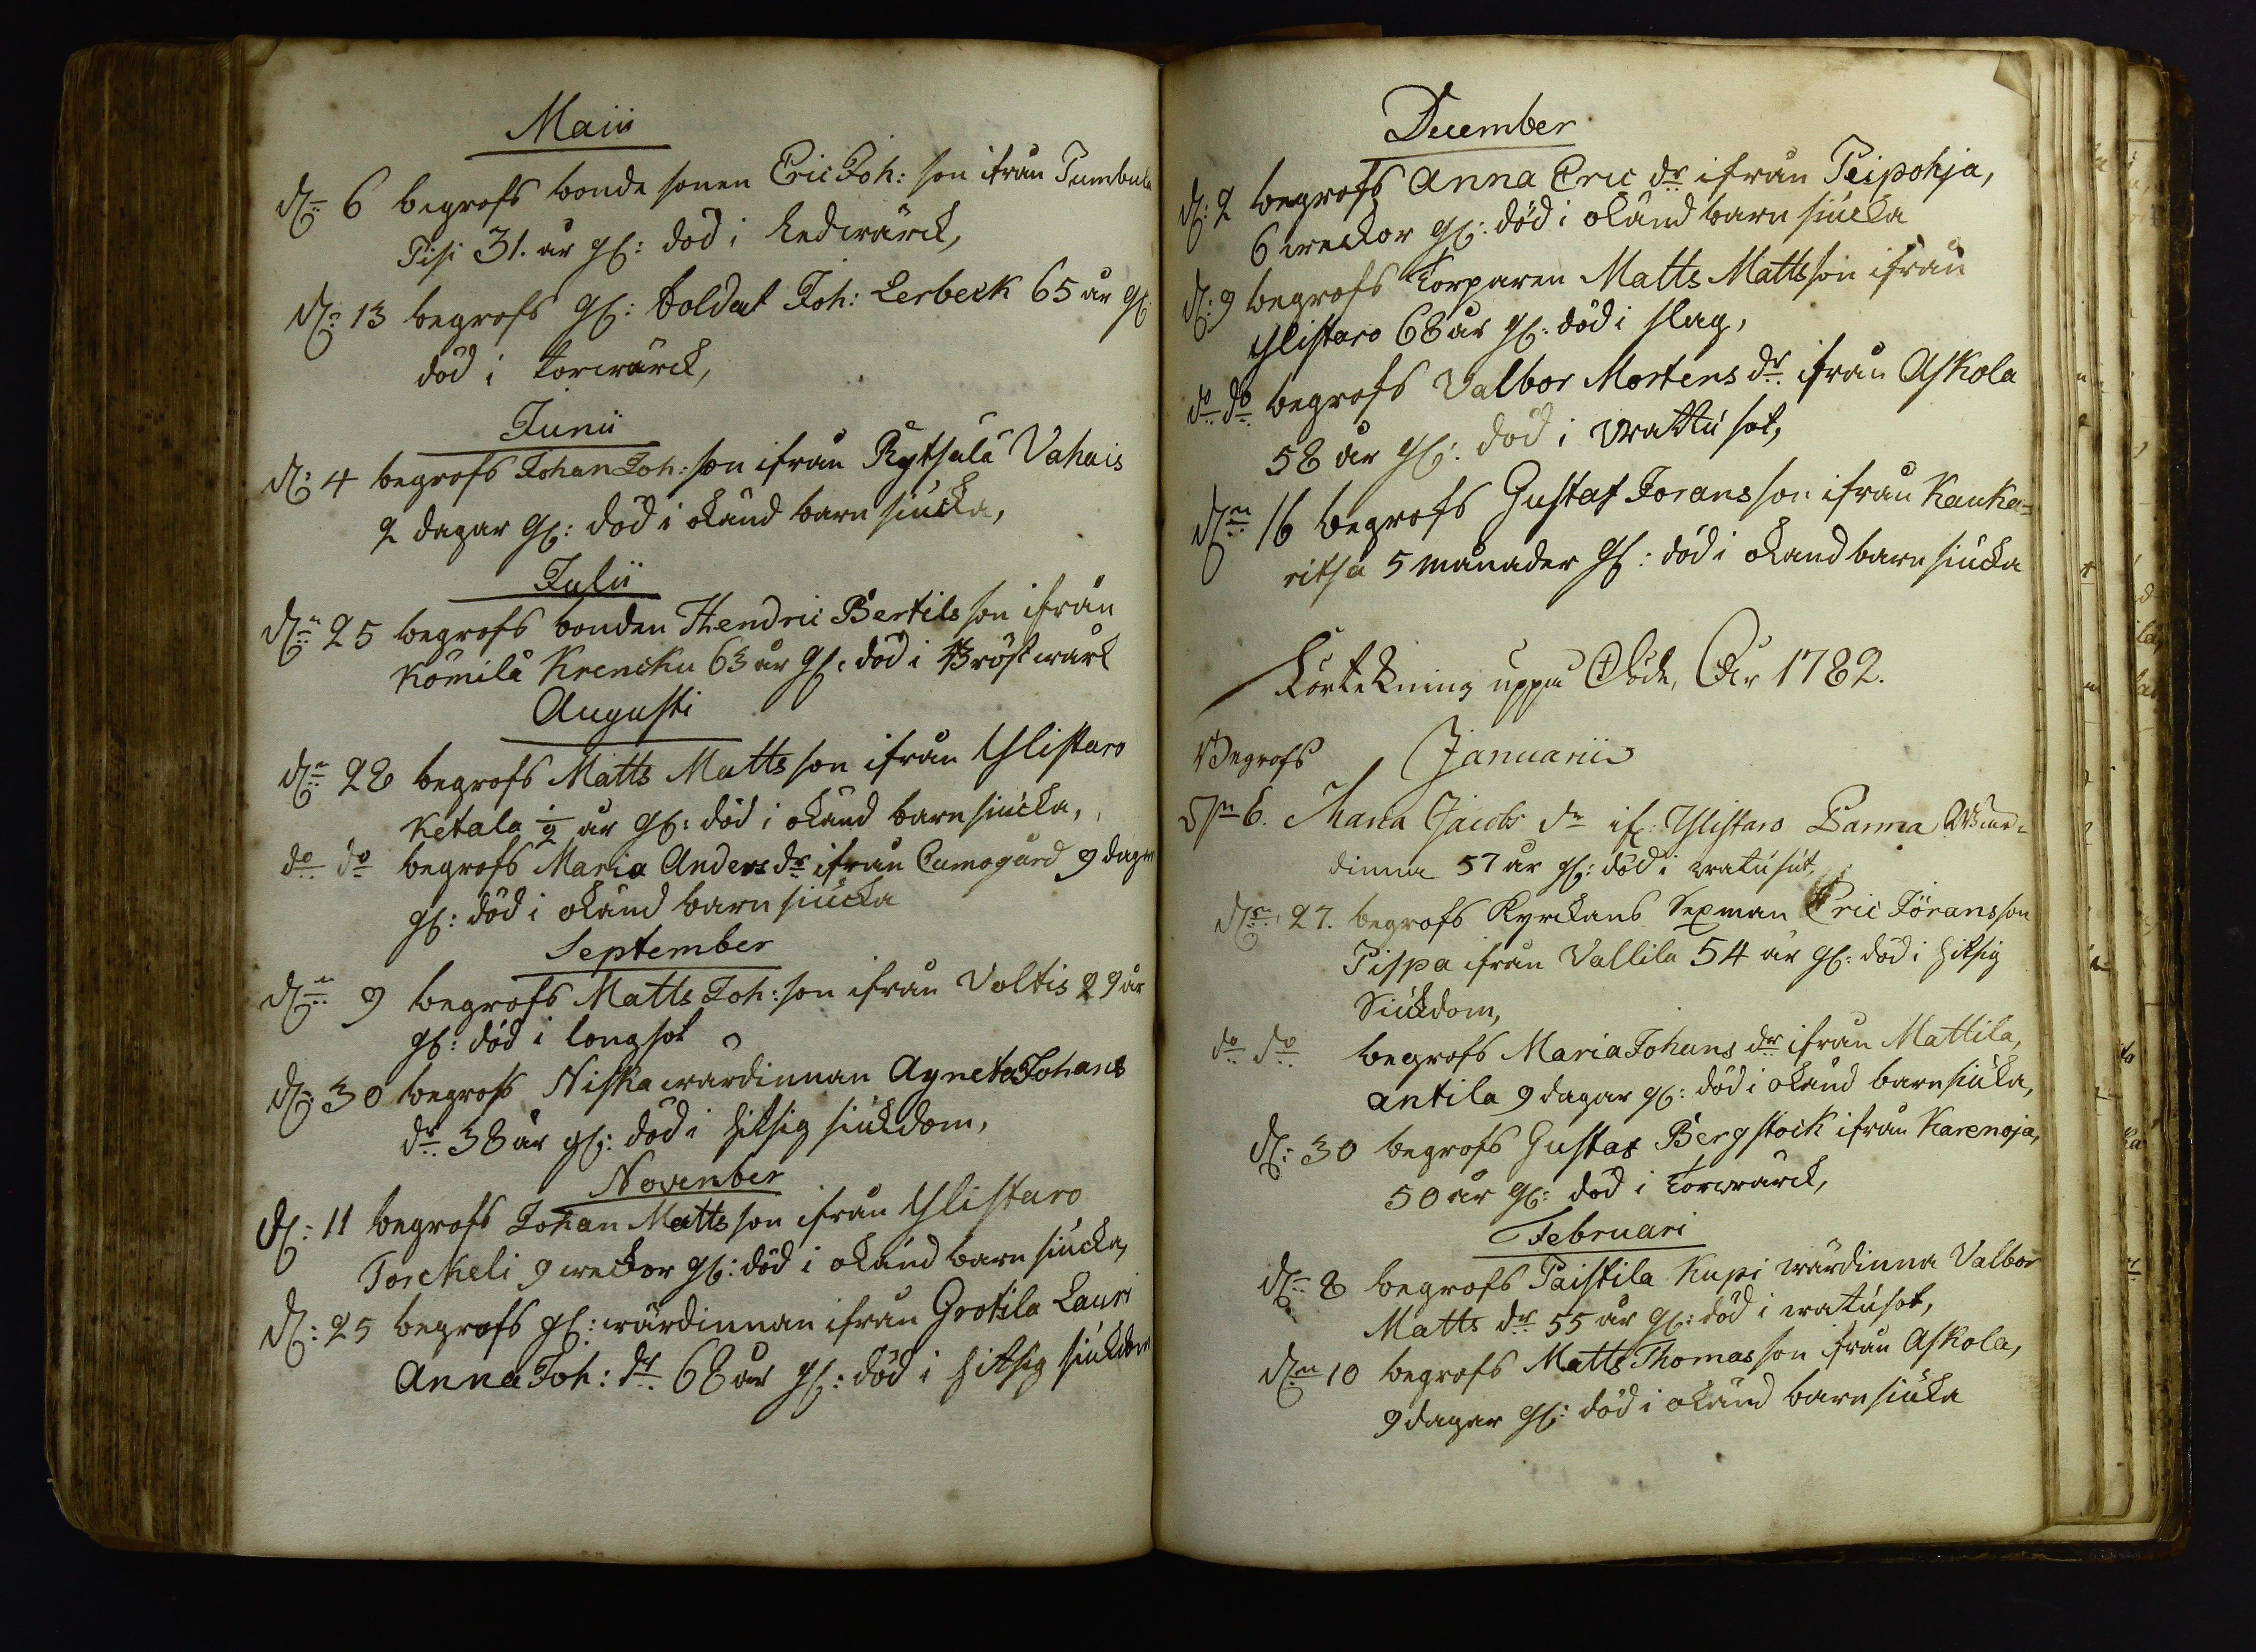 Maii
dn: 6 begrofs bonde sonen Eric Joh: son ifrån Tumbula
Tisi 31. år gl: död i ledwärck,
dn: 13 begrofs gl: Soldat Joh: Lerbeck 65 år gl:
död i torrwärck,
Junii
d: 4 begrofs Johan Joh: son ifrån Rytsälä Vahais
2 dagar gl: död i okänd barn siucka,
Julii
dn: 25 begrofs bonden Hendric Bertils son ifrån
Kömilä Krencku 63 år gl: död i Bröstwärk
Augusti
dn: 28 begrofs Matts Matts son ifrån Ylistaro
Ketala 1/2 år gl: död i okänd barnsiucka,
do do begrofs Maria Anders dr ifrån Cumogård 9 dagar
gl: död i okänd barn siucka
September
dn: 9 begrofs Matts Joh: son ifrån Voltis 29 år
gl: död i longsot
dn: 30 begrofs Niska wärdinnan Agneta Johans
dr 38 år gl: död i hitsig siukdom,
November
d: 11 begrofs Johan Matts son ifrån Ylistaro
Torckeli 9 weckor gl: död i okänd barn siucka,
d: 25 begrofs gl: wärdinnan ifrån Grotila Lauri
Anna Joh: dr 68 år gl: död i hitsig siukdom
December
d: 2 begrofs Anna Eric dr ifrån Peipohja,
6 weckor gl: död i okänd barn siucka
d: 9 begrofs Torparen Matts Mattsson ifrån
Ylistaro 68 år gl: död i slag,
do do begrofs Valbor Mortens dr ifrån Askola
58 år gl: död i wattu sot,
dn: 16 begrofs Gustaf Jorans son ifrån Kauka=
ritsa 5 månader gl: död i okänd barn siucka
Förtekning uppå Döde, År 1782.
Begrofs Januarii
dn 6. Maria Jacobs dr if: Ylistaro Panna Wär-
dinna 57 år gl: död i watusut,
dn: 27. begrofs Kyrckans Sexman Eric Jörans son
Pispa ifrån Vallila 54 år gl: död i hitsig
Siukdom,
do do begrofs Maria Johans dr ifrån Mattila,
antila 9 dagar gl: död i okänd barnsiuka,
d: 30 begrofs Gustaf Bergstock ifrån Karenoja,
50 år gl: död i torrwärck,
Februari
dn: 8 begrofs Paistila Kupi wärdinna Valbor
Matts dr 55 år gl: död i watusot,
dn: 10 begrofs Matts Thomas son från Askola,
9 dagar gl: död i okänd barnsiuka